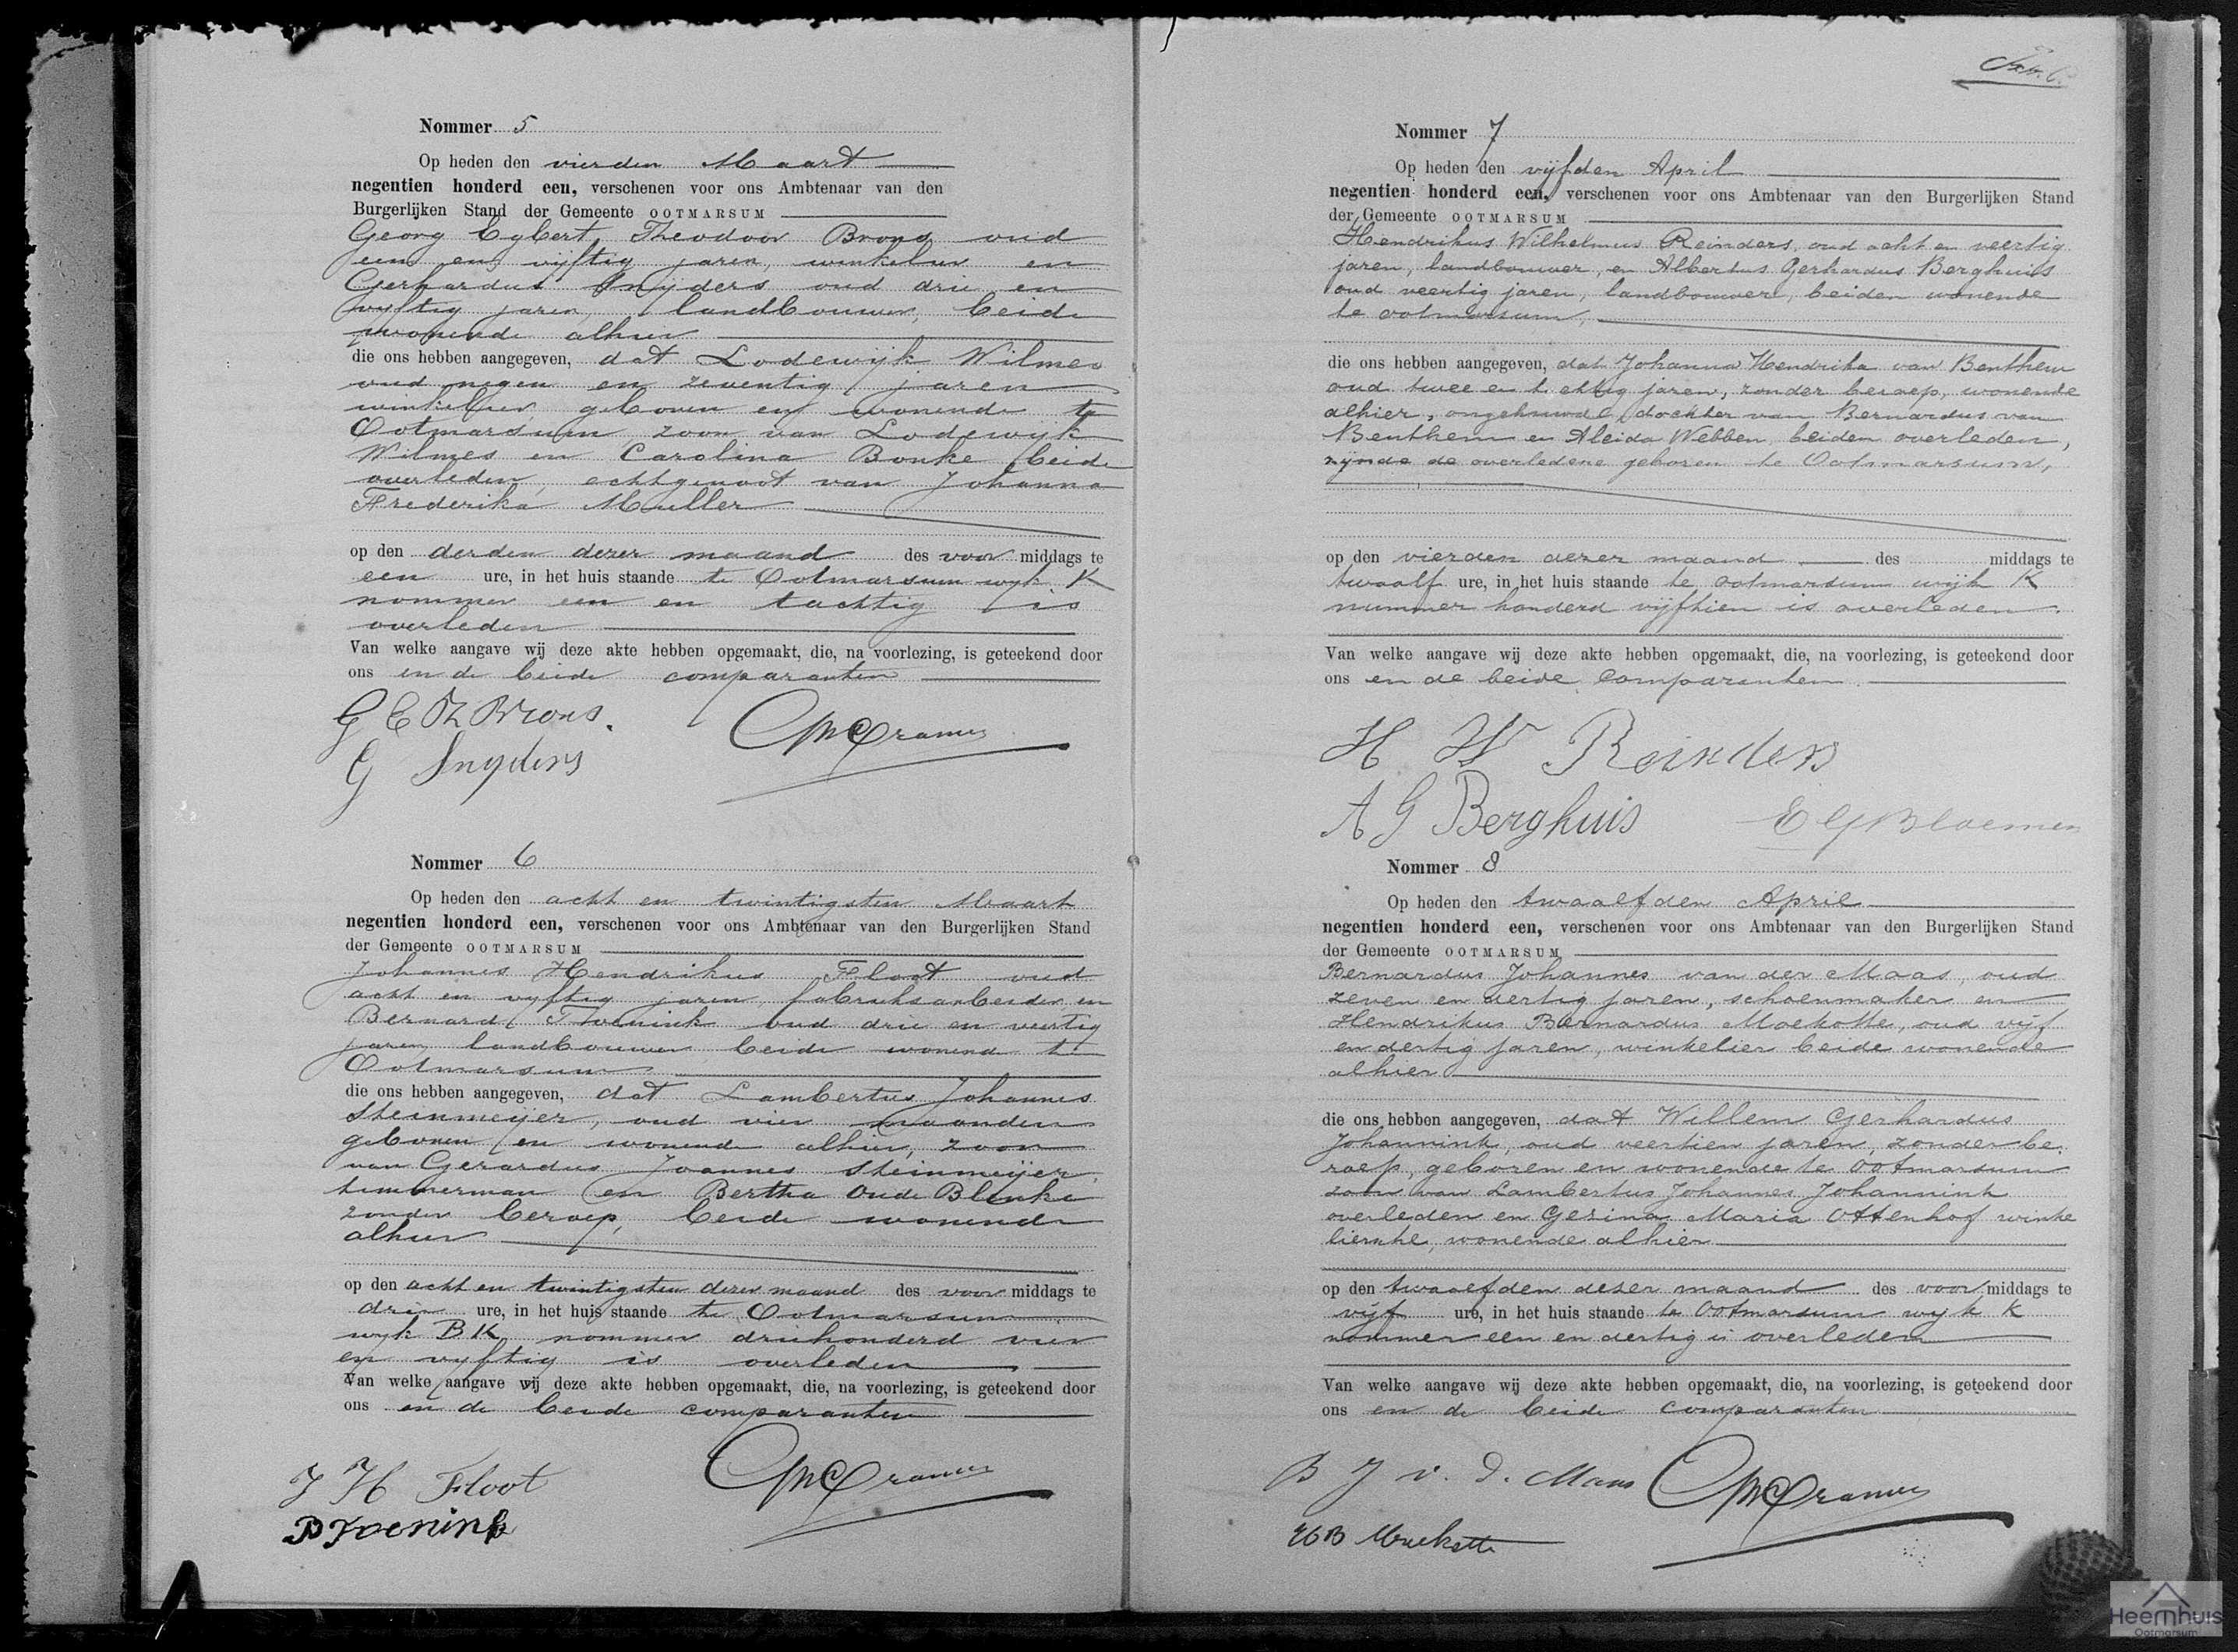 Nommer 5
Op heden den vierden Maart
negentien honderd een, verschenen voor ons Ambtenaar van den
Burgerlijken Stand der Gemeente OOTMARSUM
Georg Egbert Theodoor Brons oud
een en vijftig jaren, winkelier en
Gerhardus Snijders oud drie en
vijftig jaren, landbouwer, beide
wonende alhier
die ons hebben aangegeven, dat Lodewijk Wilmes
oud negen en zeventig jaren
winkelier geboren en wonende te
Ootmarsum zoon van Lodewijk
Wilmes en Carolina Bonke beide
overleden, echtgenoot van Johanna
Frederika Muller
op den derden dezer maand des voor middags te
een ure, in het huis staande te Ootmarsum wijk K
nommer een en tachtig is
overleden
Van welke aangave wij deze akte hebben opgemaakt, die, na voorlezing, is geteekend door
ons en de beide comparanten
G E Th Brons.
G Snyders
Cramer
Nommer 6
Op heden den acht en twintigsten Maart
negentien honderd een, verschenen voor ons Ambtenaar van den Burgerlijken Stand
der Gemeente OOTMARSUM
Johannes Hendrikus Floot oud
acht en vijftig jaren, fabrieksarbeider, en
Bernard oud drie en veertig
jaren landbouwer beide wonend te
Ootmarsum
die ons hebben aangegeven, dat Lambertus Johannes
Steinmeijer, oud vier maanden
geboren en wonende alhier, zoon
van Gerardus Joannes Steinmeijer,
timmerman en Bertha Oude Blenke
zonder beroep, beide wonende
alhier
op den acht en twintigsten dezer maand des voor middags te
drie ure, in het huis staande te Ootmarsum
wijk B K nommer driehonderd vier
en vijftig is overleden
Van welke aangave wij deze akte hebben opgemaakt, die, na voorlezing, is geteekend door
ons en de beide comparanten
J H Floot
Cramer
Nommer 7
Op heden den vijfden April
negentien honderd een, verschenen voor ons Ambtenaar van den Burgerlijken Stand
der Gemeente OOTMARSUM
Hendrikus Wilhelmus Reinders, oud acht en veertig
jaren, landbouwer, en Albertus Gerhardus Berghuis
oud veertig jaren, landbouwer, beiden wonende
te Ootmarsum,
die ons hebben aangegeven, dat Johanna Hendrika van Benthem
oud twee en jaren, zonder beroep, wonende
alhier, ongehuwde dochter van Bernardus van
Benthem en Aleida Webben, beiden overleden,
zijnde de overledene geboren te Ootmarsum,
op den vierden dezer maand des middags te
twaalf ure, in het huis staande te Ootmarsum wijk K
nummer honderd vijftien is overleden.
Van welke aangave wij deze akte hebben opgemaakt, die, na voorlezing, is geteekend door
ons en de beide Comparanten.
H W Reinders
A G Berghuis
E G Bloemen
Nommer 8
Op heden den twaalfden April
negentien honderd een, verschenen voor ons Ambtenaar van den Burgerlijken Stand
der Gemeente OOTMARSUM
Bernardus Johannes van der Maas, oud
zeven en dertig jaren, schoenmaker en
Hendrikus Bernardus Moekotte, oud vijf
en dertig jaren, winkelier beide wonende
alhier
die ons hebben aangegeven, dat Willem Gerhardus
Johannink, oud veertien jaren, zonder be-
roep, geboren en wonende te Ootmarsum
zoon van Lambertus Johannes Johannink
overleden en Gezina Maria Ottenhof winke
lierske, wonende alhier
op den twaalfden dezer maand des voor middags te
vijf ure, in het huis staande te Ootmarsum wijk K
nommer een en dertig is overleden
Van welke aangave wij deze akte hebben opgemaakt, die, na voorlezing, is geteekend door
ons en de beide comparanten
B J v. d. Maas
Cramer
HB Moekotte
Heemhuis
Ootmarsum